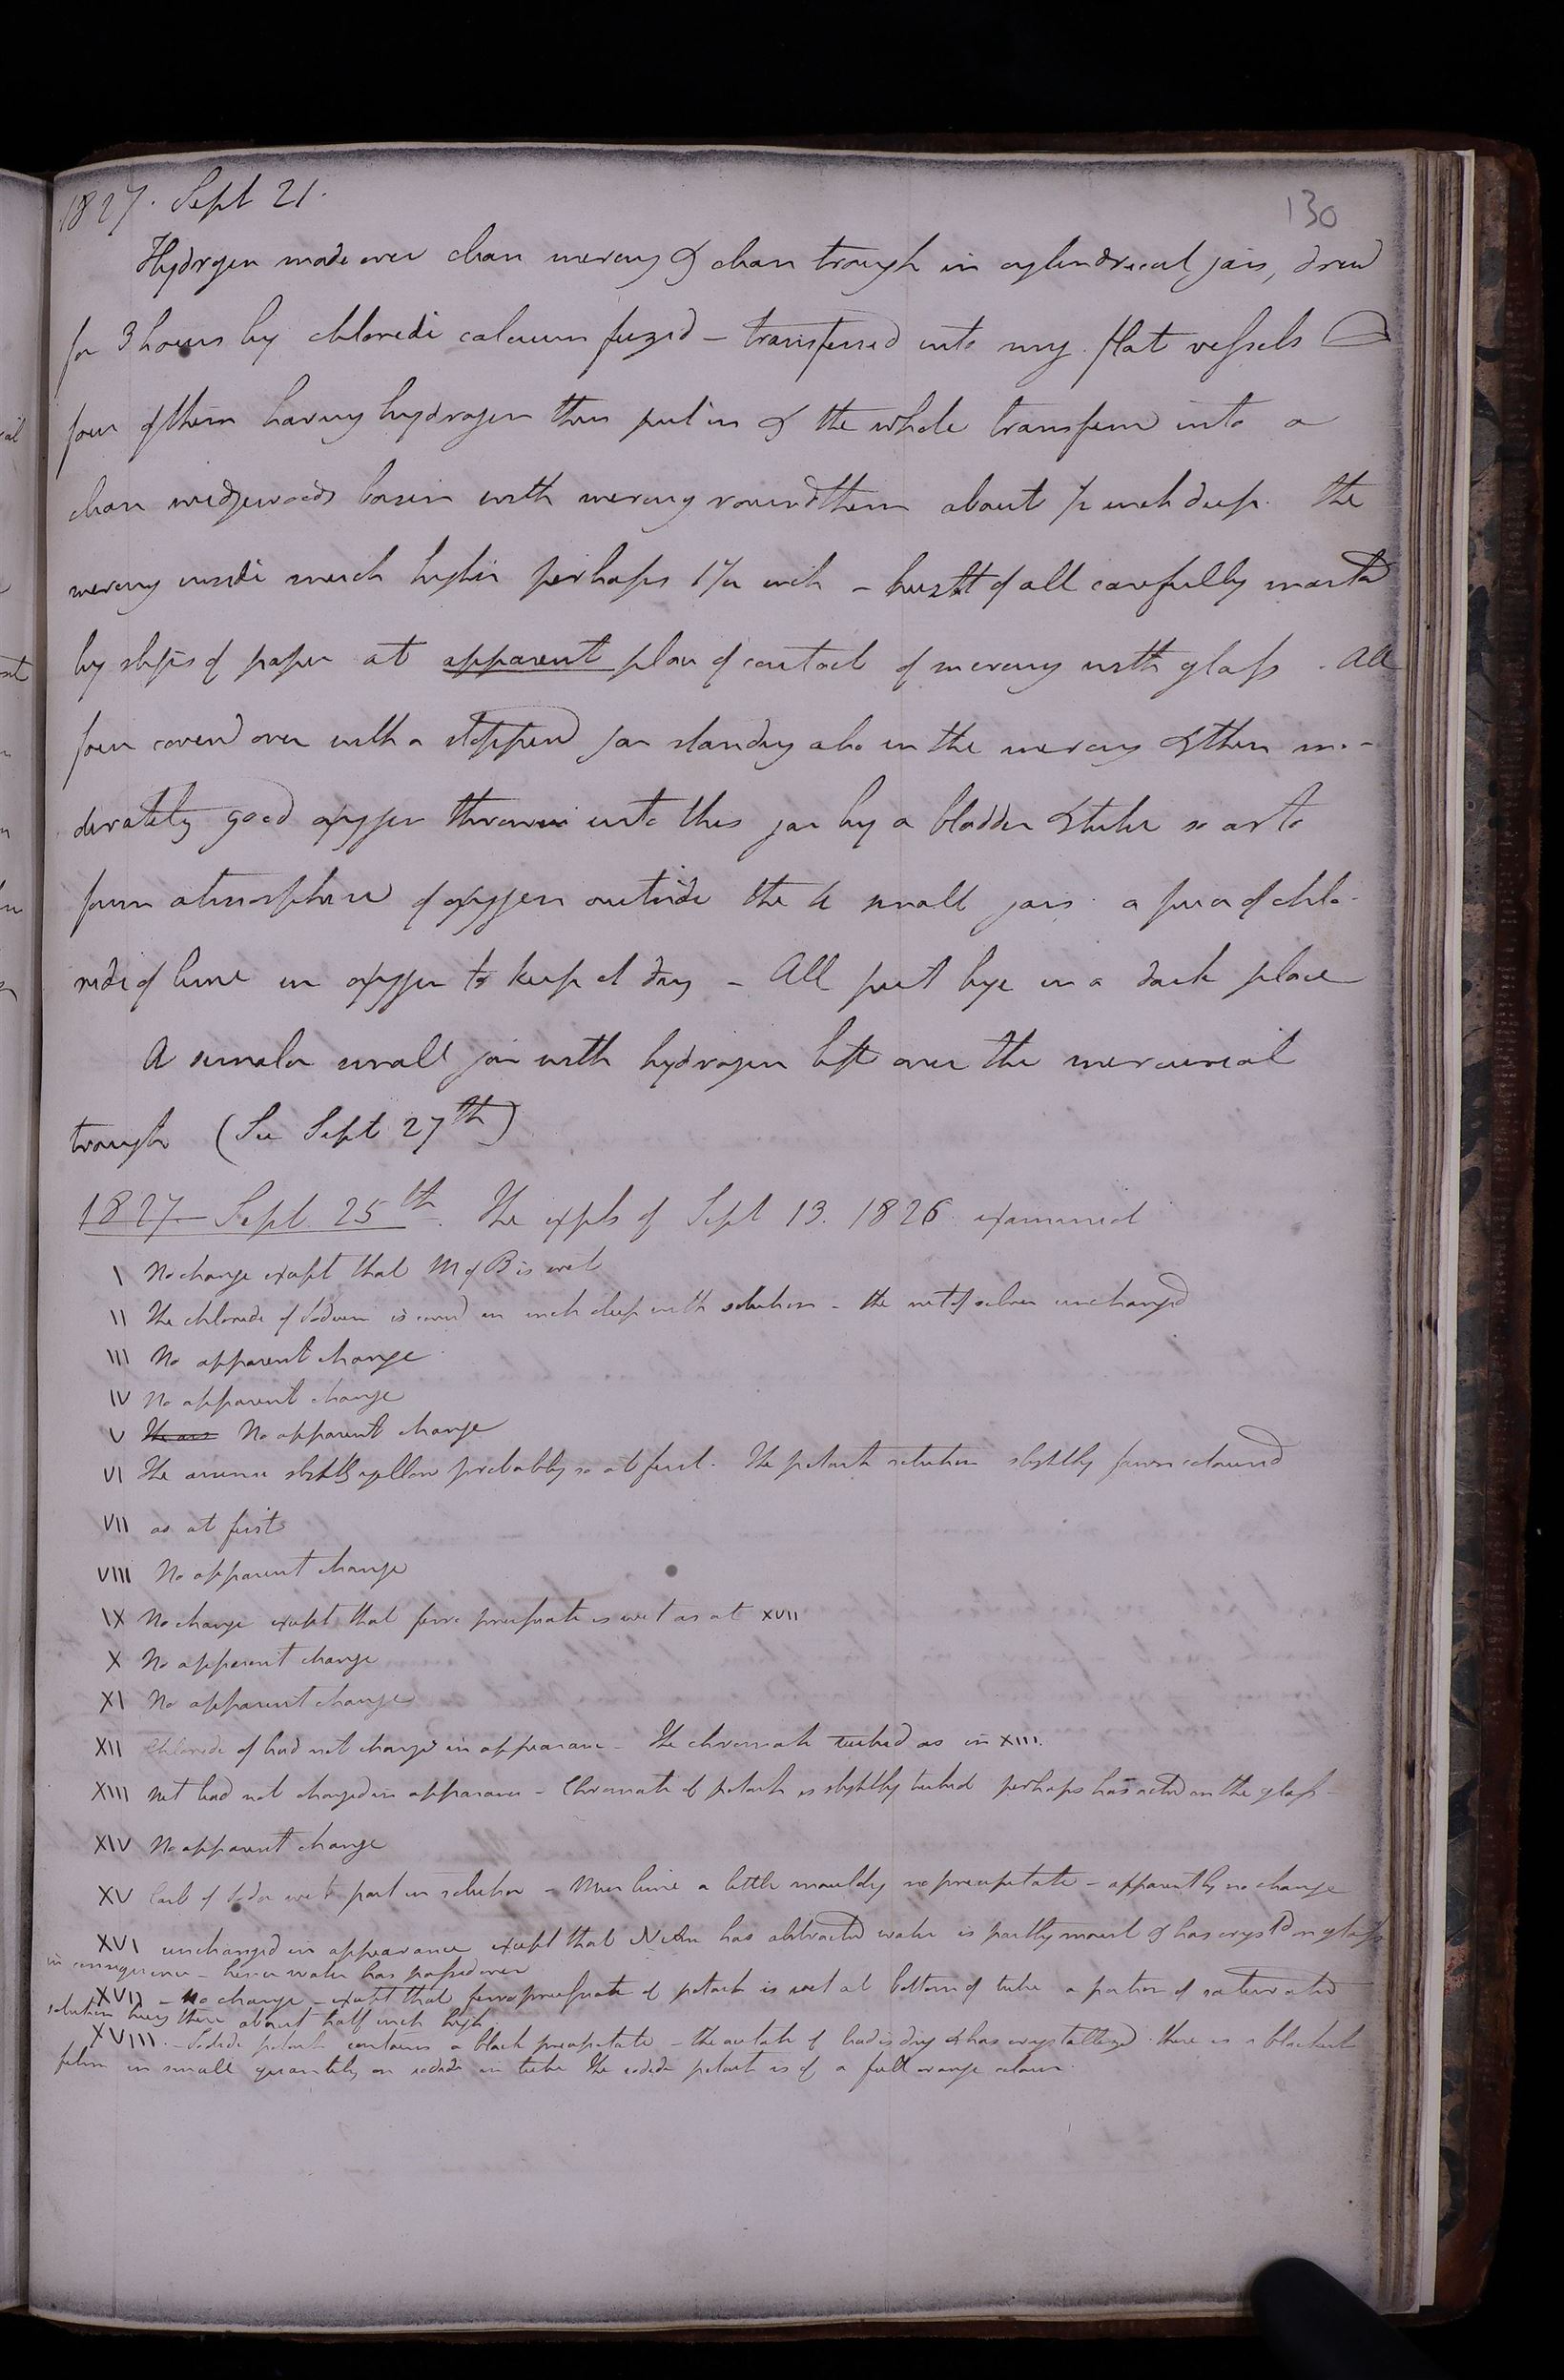 130
1827. Sept 21.
Hydrogen made over clean mercury & clean trough in cylindrical jars, dried
for 3 hours by chloride calcium fuzed - transferred into my flat vessels
four of them having hydrogen thus put in & the whole transferred into a
clean wedgewoods basin with mercury round them about 1/2 inch deep. the
mercury inside much higher perhaps 1 1/2 inch - height of all carefully marked
by slips of paper at apparent place of contact of mercury with glass. All
four covered over with a stoppered jar standing also in the mercury & then mo-
derately good oxygen thrown into this jar by a bladder & tube so as to
form atmosphere of oxygen outside the 4 small jars. a piece of chlo-
ride of lime in oxygen to keep it dry - All put bye in a dark place
A similar small jar with hydrogen left over the mercurial
trough (See Sept 27th)
1827. Sept 25th. The expts of Sept 13. 1826 examined
I No change except that M of B is wet
II The chloride of Sodium is covd an inch deep with solution - the nit of silver unchanged
III No apparent change
IV No apparent change
V No apparent change
VI The slightly yellow probably so at first. The potash solution slightly fawn coloured
VII as at first
VIII No apparent change
IX No change except that ferro prussiate is wet as at XVII
X No apparent change
XI No apparent change
XII Chloride of lead not changed in appearance - The chromate turbid as in XIII.
XIII Nit lead not changed in appearance - Chromate of potash is slightly turbid perhaps has acted on the glass -
XIV No apparent change
XV Carb of Soda wet part in solution - Mur lime a little mouldy no precipitate - apparently no change
XVI unchanged in appearance except that N Am has abstracted water is partly moist & has crystd on glass
in consequence - hence water has passed over
XVII - No change - except that ferro prussiate of potash is wet at bottom of tube a portion of saturated
solution being there about half inch high.
XVIII. - Iodide potash contains a black precipitate - the acetate of lead is dry & has crystallized. there is a blackish
film in small quantity on iodide in tube the iodide potash is of a full orange colour.